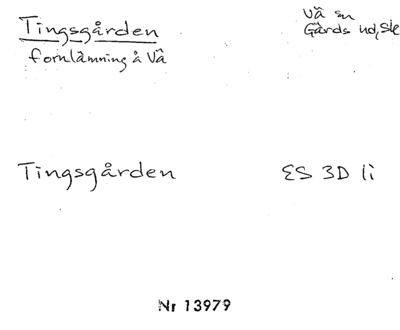 Tingsgården
Vä sn
Gärds hd, Sk
fornlämning å Vä
Tingsgården
ES 3D 1i
Nr 13979